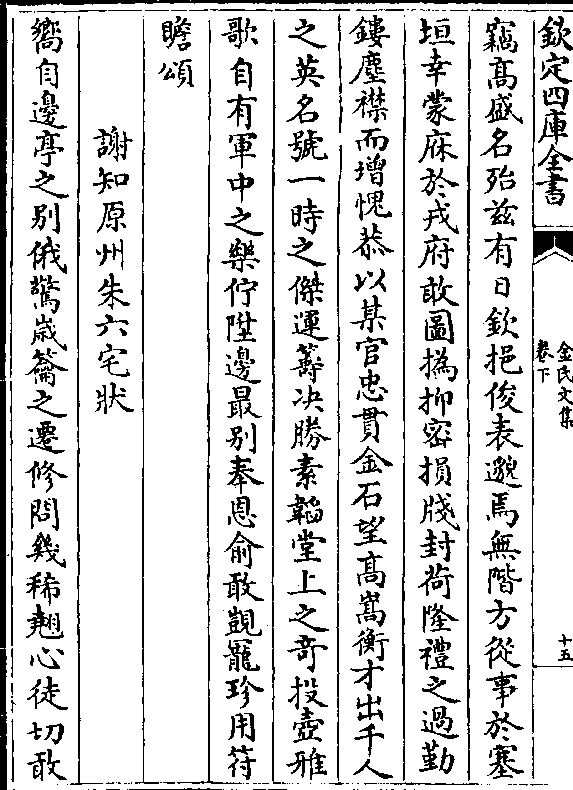 欽定四庫全書
金氏文集
卷下
十五
竊高盛名殆兹有日欽挹俊表邈焉無階方從事於塞
垣幸蒙庥於戎府敢圖撝抑密損牋封荷隆禮之過勤
鏤塵襟而增愧恭以某官忠貫金石望高嵩衡才出千人
之英名號一時之傑運籌决勝素韜堂上之竒投壺雅
歌自有軍中之樂佇陞邊最别奉恩俞敢覬罷珍用符
瞻頌
謝知原州朱六宅狀
嚮自邊亭之别俄驚歲籥之遷修問幾稀翹心徒切敢